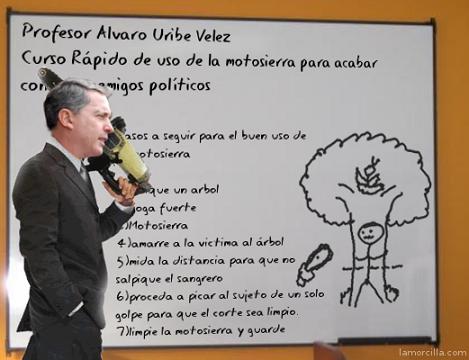 Profesor Alvaro Uribe Velez
Curso Rápido de uso de la motosierra para acabar
políticos
a seguir para el buen uso de
motosierra
un arbol
fuerte
Motosierra
4)amarre a la victima al árbol
5)mida la distancia para que no
salpique el sangrero
6)proceda a picar al sujeto de un solo
golpe para que el corte sea limpio.
7)limpie la motosierra y guarde
lamorcilla.com